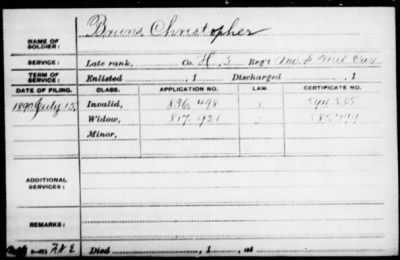 NAME OF SOLDIER: Bruns, Christopher
SERVICE: Late rank, Co. H, 3 Reg't Mo. S. Mil. Cav.
TERM OF SERVICE: Enlisted , 1 Discharged , 1
DATE OF FILING. CLASS. APPLICATION NO. LAW. CERTIFICATE NO.
1890 July 15 Invalid, 836,498
Widow, 817,921
Minor,
ADDITIONAL SERVICES:
REMARKS:
Died , 1 , at